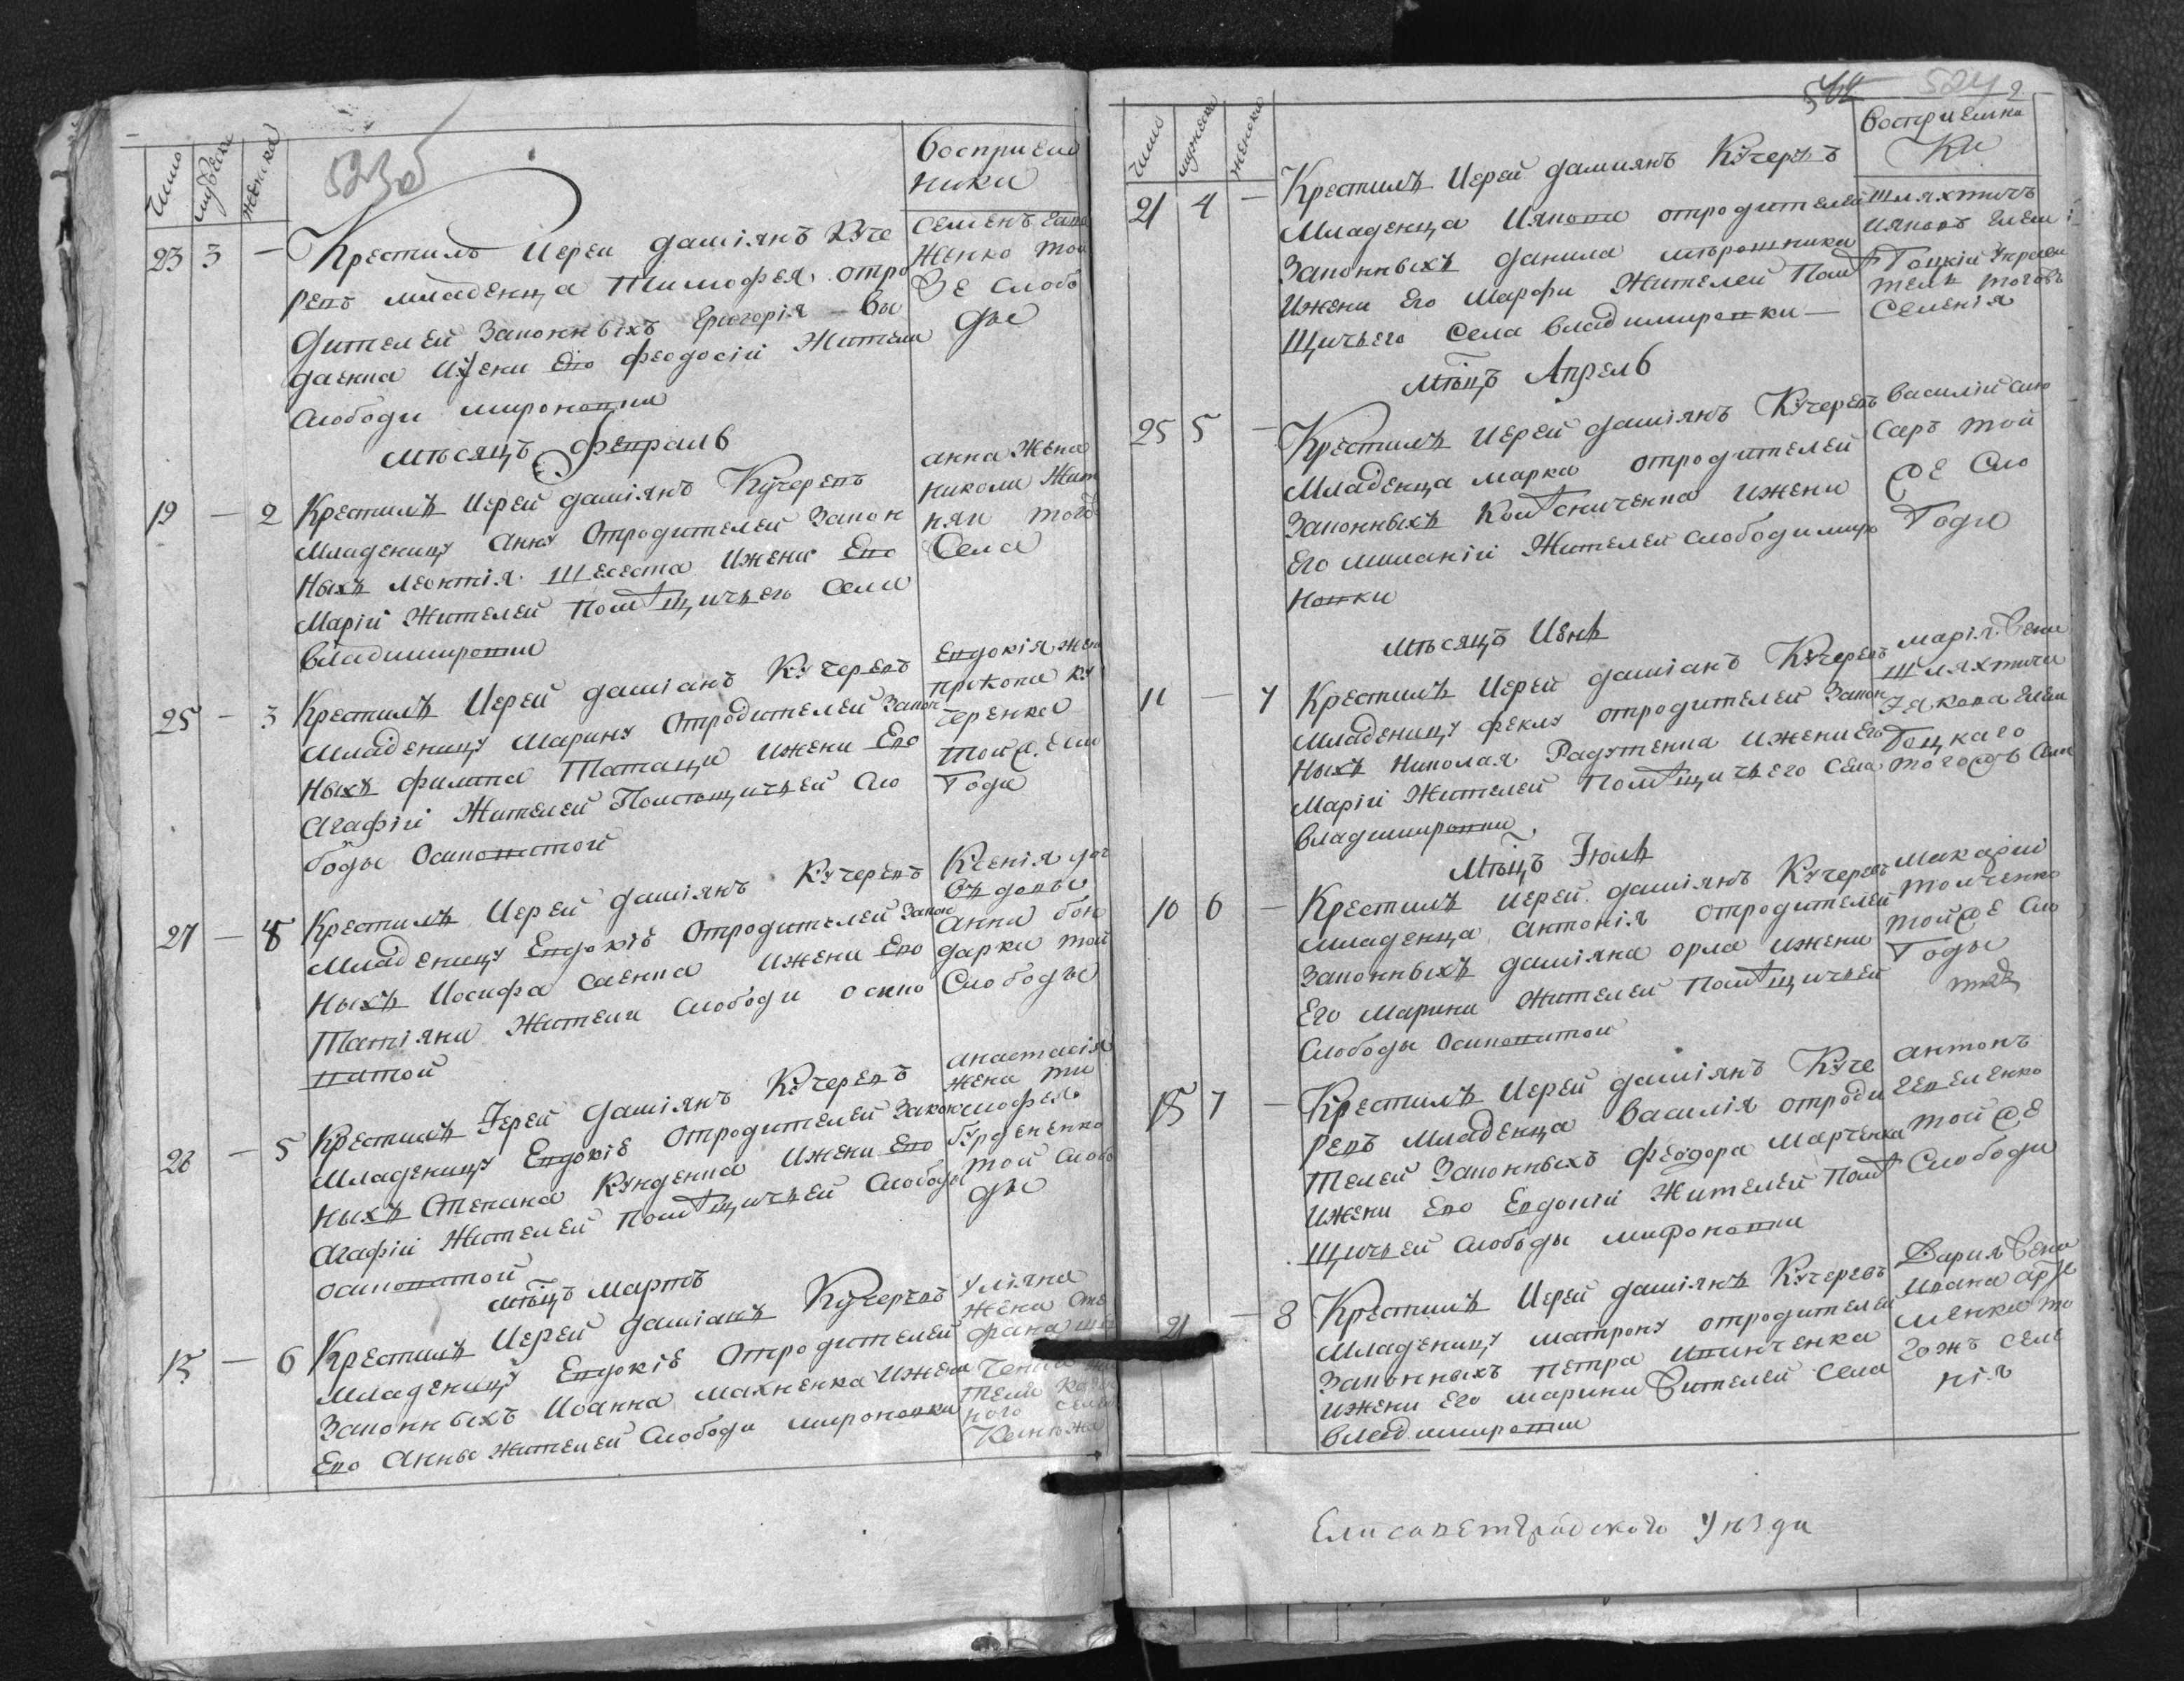 число
мужеска
женска
523об
восприем
ники
23 3 —
Крестилъ Иерей даміянъ Куче
ревъ младенца Тимофея отро
дителей законныхъ Григорія
даенка Ижени Его феодосіи Жители
слободи мироновки
семенъ
женко той
же слобо
ды
мѣсяцъ февраль
19 — 2
Крестилъ Иерей даміянъ Кучеревъ
младеницу Анну отродителей закон
ныхъ леонтія Шееста Ижени Его
Маріи Жителей помѣщичъего села
владимировки
анна жена
николи
того
села
25 — 3
Крестилъ Иерей даміанъ Кучеревъ
младеницу Марину отродителей закон
ныхъ филипа Татаци Ижени Его
Агафіи Жителей Помѣщичъей сло
боды Осиповитой
Евдокія жен
прокопа ку
черенка
тойже сло
боди
27 — 4
Крестилъ Иерей даміянъ Кучеревъ
младеницу Евдокію отродителей закон
ныхъ Иосифа саенка Ижени Его
Татіяни Жители слободи осино
ватой
Ксенія доч
вдовы
Анни бон
дарки той
слободы
28 — 5
Крестилъ Іерей даміянъ Кучеревъ
младеницу Евдокію отродителей закон
ныхъ Степана Кунденка Ижени Его
Агафіи Жителей помѣщичъей слободы
осиповитой
анастасія
жена ти
мофея
Гурдененко
той слобо
ды
мѣцъ Мартъ
15 — 6
Крестилъ Иерей даміанъ Кучеревъ
младеницу Евдокію отродителей
законныхъ Иоанна махненка Ижени
Его Анны жителей слободи мироновки
Уліяна
жена сте
фана
ченка
ного села
524
2
число
мужеска
женска
восприемни
ки
21 4 —
Крестилъ Иерей даміянъ Кучеревъ
младенца Иякова отродителей
законныхъ данила мірошника
Ижени Его Марфи Жителей Помѣ
щичьего села владимировки —
шляхтичъ
ияковъ
управи
тель тогожъ
селенія
мѣцъ Апрель
25 5 —
Крестилъ Иерей даміянъ Кучеревъ
младенца марка отродителей
законныхъ Ижени
Его миланіи Жителей слободи миро
новки
василій слю
саръ той
же сло
боди
мѣсяцъ Июнь
11 — 7
Крестилъ Иерей даміанъ Кучеревъ
младеницу феклу отродителей закон
ныхъ николая Радутенка Ижени Его
Маріи Жителей помѣщичъего села
владимировки
марія жена
шляхтича
Іакова
тогожъ села
мѣцъ Іюль
10 6 —
Крестилъ Иерей даміянъ Кучеревъ
младенца Антонія отродителей
законныхъ даміяна орла Ижени
Его Марини Жителей помѣщичьей
слободы Осиповитой
макарій
толченко
тойже сло
боды
15 7 —
Крестилъ Иерей даміянъ Куче
ревъ младенца василія отроди
телей законныхъ феодора марченка
Ижени Его Евдокіи Жителей Помѣ
щичьей слободы мироновки
антонъ
тойже
слободи
21 — 8
Крестилъ Иерей даміянъ Кучеревъ
младеницу матрону отродителей
законныхъ петра ивинченка
Ижени Его марини жителей села
владимировки
Дарія жена
ивана
менка то
гожъ селе
нія
Елисаветградского уѣзда